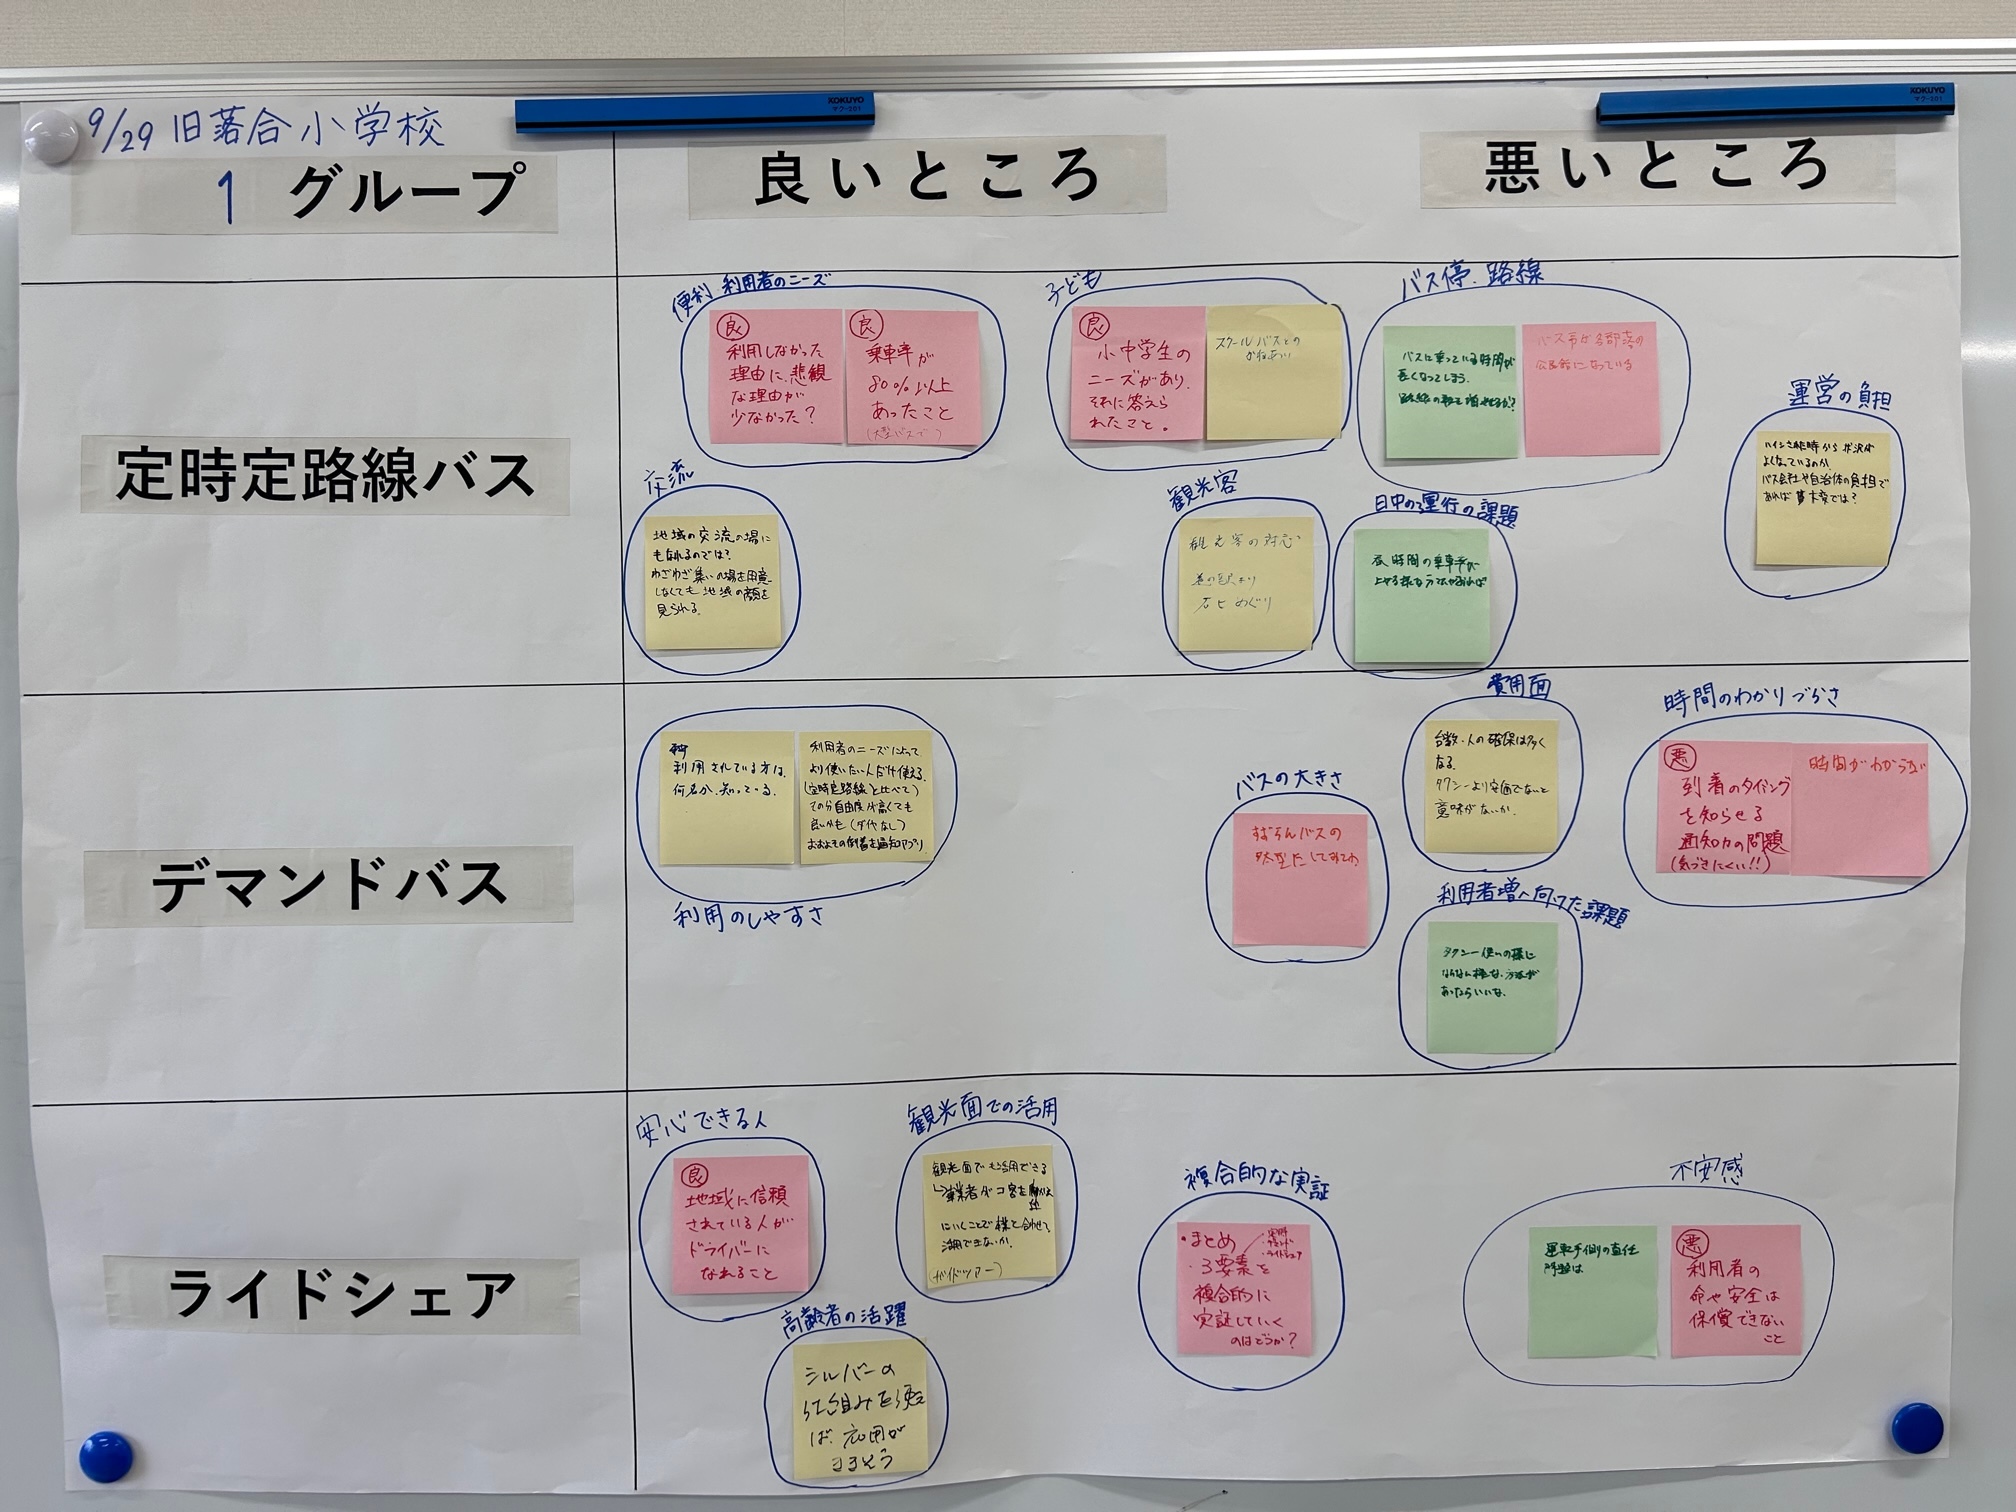 9/29 旧落合小学校
1 グループ
良いところ
悪いところ
KOKUYO
KOKUYO
定時定路線バス
便利 利用者のニーズ
良
利用しなかった
理由に、悲観
な理由が
少なかった?
良
乗車率が
80%以上
あったこと
(大型バスで)
子ども
良
小中学生の
ニーズがあり、
それに答えら
れたこと。
スクールバスとの
かねあい
バス停、路線
バスに乗っている時間が
長くなってしまう。
路線の数を増やせるか?
バス停が各部落の
公民館になっている
運営の負担
よくなっているのか
バス会社や自治体の負担で
あれば大変では?
交流
地域の交流の場に
もなれるのでは?
わざわざ集いの場を用意
しなくても地域の顔を
見られる。
観光客
観光客の対応
めぐり
日中の運行の課題
昼時間の乗車率が
デマンドバス
利用されている方は、
何名か、知っている。
利用者のニーズによって
より使いたい人だけ使える。
(定時定路線と比べて)
その分自由度が高くても
良いかも(ダイヤなし)
おおよその到着を通知アプリ
利用のしやすさ
バスの大きさ
すばらんバスの
してみては
費用面
台数・人の確保は多く
なる。
タクシーより安価でないと
意味がないか。
時間のわかりづらさ
悪
到着のタイミング
を知らせる
通知力の問題
(気づきにくい!!)
時間がわからない
利用者増へ向けた課題
タクシー使いの様に
ならない様な、方法が
あったらいいな。
ライドシェア
安心できる人
良
地域に信頼
されている人が
ドライバーに
なれること
観光面での活用
観光面でも活用できる
にいくことで様と合わせて
活用できないか。
(ガイドツアー)
高齢者の活躍
シルバーの
仕組みを使え
ば、応用が
きそう
複合的な実証
・まとめ
・3要素を
・定時
・デマンド
・ライドシェア
複合的に
実証していく
のはどうか?
不安感
運転手側の責任
問題は
悪
利用者の
命や安全は
保償できない
こと